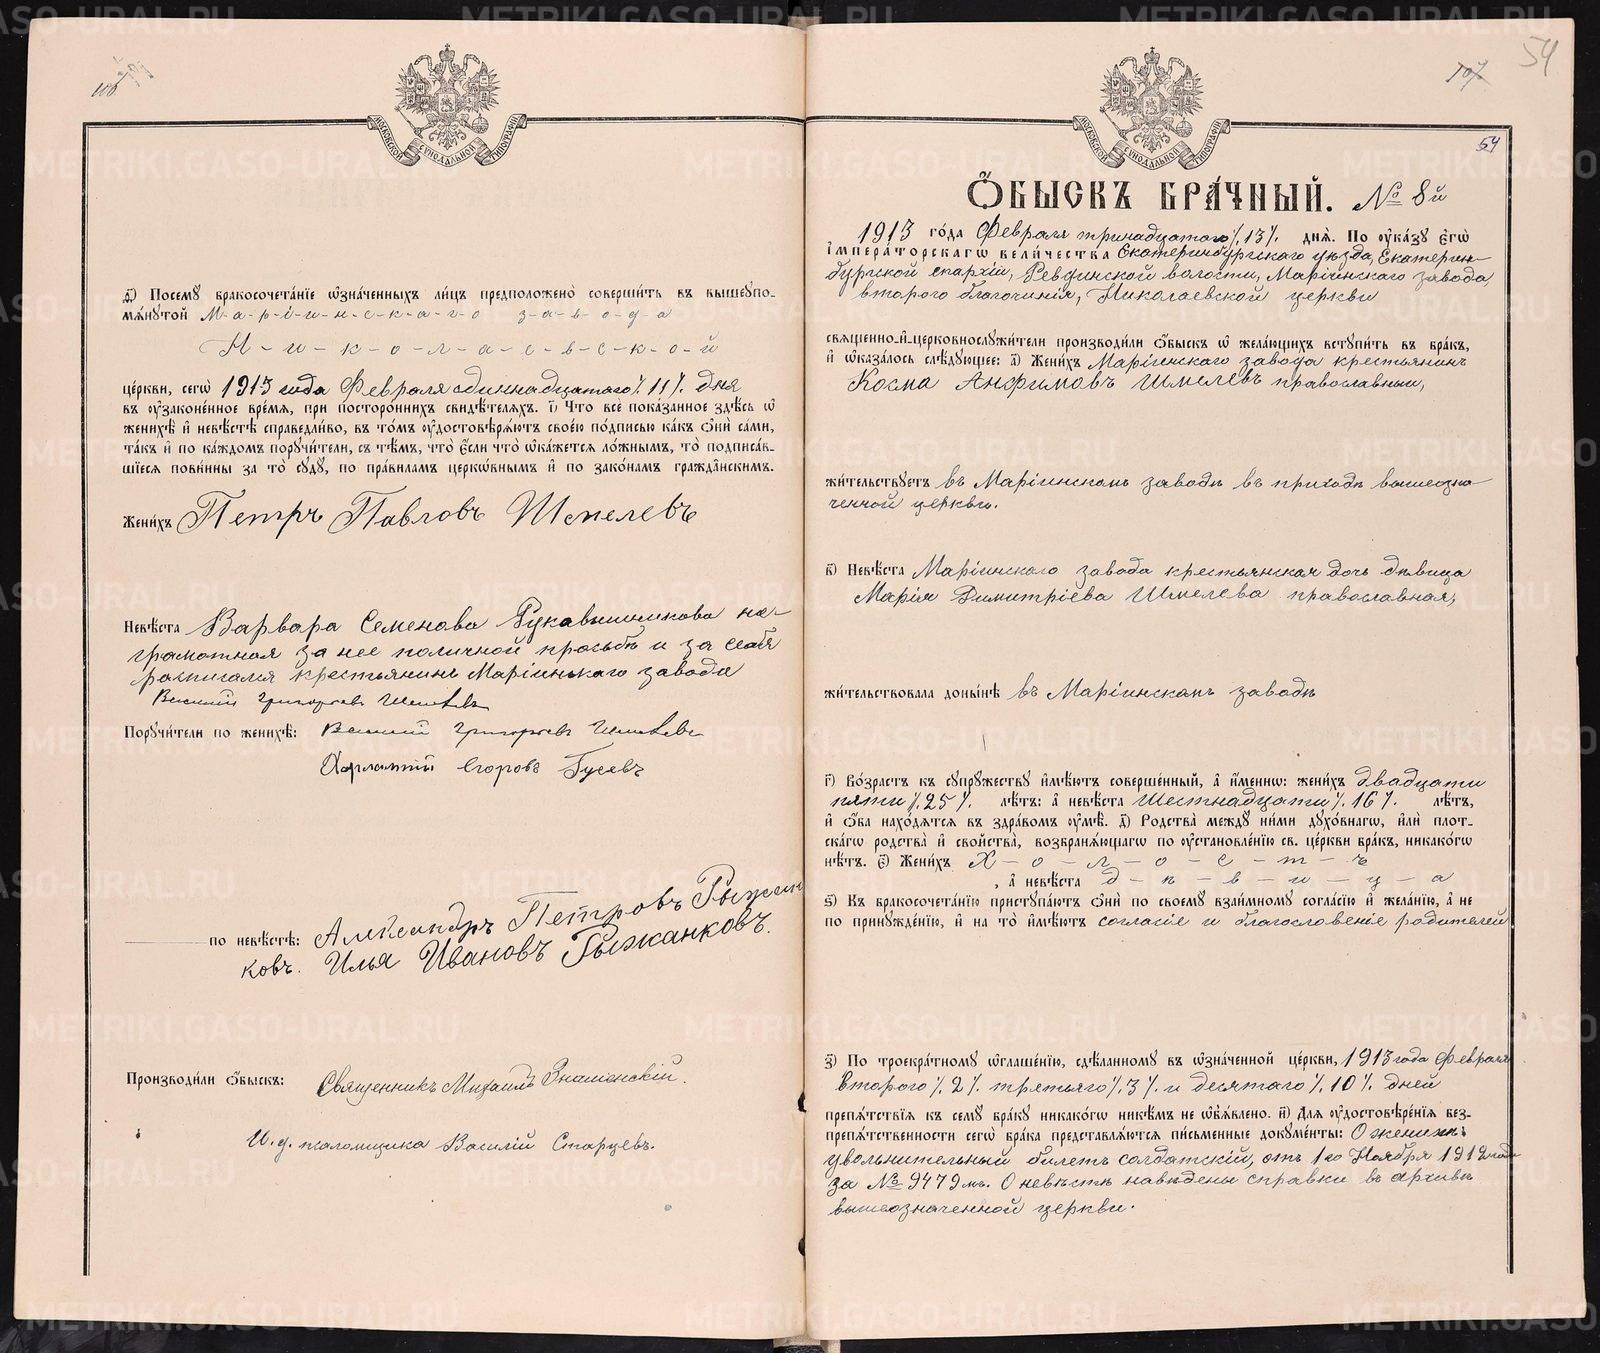 106
МОСКОВСКОЙ СѴНОДАЛЬНОЙ ТИПОГРАФІИ
д҃і) Посемꙋ̀ бракосочета́нїе ѡ҆зна́ченныхъ ли́цъ предположено̀ соверши́ть въ вышеꙋпо-
мѧ́нꙋтой М-а-р-і-и-н-с-к-а-г-о з-а-в-о-д-а
Н-и-к-о-л-а-е-в-с-к-о-й
це́ркви, сегѡ̀ 1913 года Февраля одиннадцатого /.11/. дня
въ ᲂу҆зако́ненное вре́мѧ, при посторо́ннихъ свидѣ́телѧхъ. і҃) Что̀ всѐ пока́занное здѣ́сь ѡ҆
женихѣ̀ и҆ невѣ́стѣ справедли́во, въ то́мъ ᲂу҆достовѣрѧ́ютъ свое́ю по́дписью ка́къ ѻ҆нѝ са́ми,
та́къ и҆ по ка́ждомъ порꙋчи́тели, съ тѣ́мъ, что̀ є҆́сли что̀ ѡ҆ка́жетсѧ ло́жнымъ, то̀ подписа́в-
шїесѧ пови́нны за то̀ сꙋдꙋ̀, по пра́виламъ церкѡ́внымъ и҆ по зако́намъ гражда́нскимъ.
Жени́хъ Петръ Павловъ Шмелевъ
Невѣ́ста Варвара Семенова Рукавишникова не-
грамотная за нее по личной просьбѣ и за себя
росписался крестьянинъ Маріинскаго завода
Василій Григорьевъ Шмелевъ
Порꙋчи́тели по женихѣ̀: Василій Григорьевъ Шмелевъ
Харлампій Егоровъ Гусевъ
по невѣ́стѣ: Александръ Петровъ Рыжан
ковъ. Илья Ивановъ Рыжанковъ.
Производи́ли ѻ҆́быскъ: Священникъ Михаилъ Знаменскій.
И. д. псаломщика Василій Старцевъ.
107
54
54
МОСКОВСКОЙ СѴНОДАЛЬНОЙ ТИПОГРАФІИ
Ѻ҆́БЫСКЪ БРА́ЧНЫЙ. № 8й
1913 го́да Февраля тринадцатого /.13/. днѧ̀. По ᲂу҆ка́зꙋ є҆гѡ̀
і҆мпера́торскагѡ вели́чества Екатеринбургскаго уѣзда, Екатерин-
бургской епархіи, Ревдинской волости, Маріинскаго завода,
второго благочинія, Николаевской церкви
свѧще́нно-и҆-церковнослꙋжи́тели производи́ли ѻ҆́быскъ ѡ҆ жела́ющихъ встꙋпи́ть въ бра́къ,
и҆ ѡ҆каза́лось слѣ́дꙋющее: а҃) Жени́хъ Маріинскаго завода крестьянинъ
Косма Анфимовъ Шмелевъ православный,
жи́тельствꙋетъ въ Маріинскомъ заводѣ въ приходѣ вышеозна-
ченной церкви.
в҃) Невѣ́ста Маріинскаго завода крестьянская дочь дѣвица
Марія Димитріева Шмелева православная,
жи́тельствовала доны́нѣ въ Маріинскомъ заводѣ
г҃) Во́зрастъ къ сꙋпрꙋ́жествꙋ и҆мѣ́ютъ соверше́нный, а҆ и҆́меннѡ: жени́хъ двадцати
пяти /.25/. лѣ́тъ: а҆ невѣ́ста шестнадцати /.16/. лѣ́тъ,
и҆ ѻ҆́ба нахо́дѧтсѧ въ здра́вомъ ᲂу҆мѣ̀. д҃) Родства̀ междꙋ̀ ни́ми дꙋхо́внагѡ, и҆лѝ плот-
ска́гѡ родства̀ и҆ сво́йства, возбранѧ́ющагѡ по ᲂу҆становле́нїю св. це́ркви бра́къ, никако́гѡ
нѣ́тъ. є҃) Жени́хъ Х-о-л-о-с-т-ъ
, а҆ невѣ́ста д-ѣ-в-и-ц-а
ѕ҃) Къ бракосочета́нїю пристꙋпа́ютъ ѻ҆нѝ по своемꙋ̀ взаи́мномꙋ согла́сїю и҆ жела́нїю, а҆ не
по принꙋжде́нїю, и҆ на то̀ и҆мѣ́ютъ согласіе и благословеніе родителей
з҃) По троекра́тномꙋ ѡ҆глаше́нїю, сдѣ́ланномꙋ въ ѡ҆зна́ченной це́ркви, 1913 года Февраля
второго /.2/. третьяго /.3/. и десятаго /.10/. дней
препѧ́тствїѧ къ семꙋ̀ бра́кꙋ никако́гѡ никѣ́мъ не ѡ҆б̾ѧ́влено. и҃) Для ᲂу҆достовѣре́нїѧ без-
препѧ́тственности сегѡ̀ бра́ка представлѧ́ютсѧ пи́сьменные докꙋме́нты: О женихѣ
увольнительный билетъ солдатскій, отъ 1го Ноября 1912 года
за № 9479мъ. О невѣстѣ наведены справки въ архивѣ
вышеозначенной церкви.